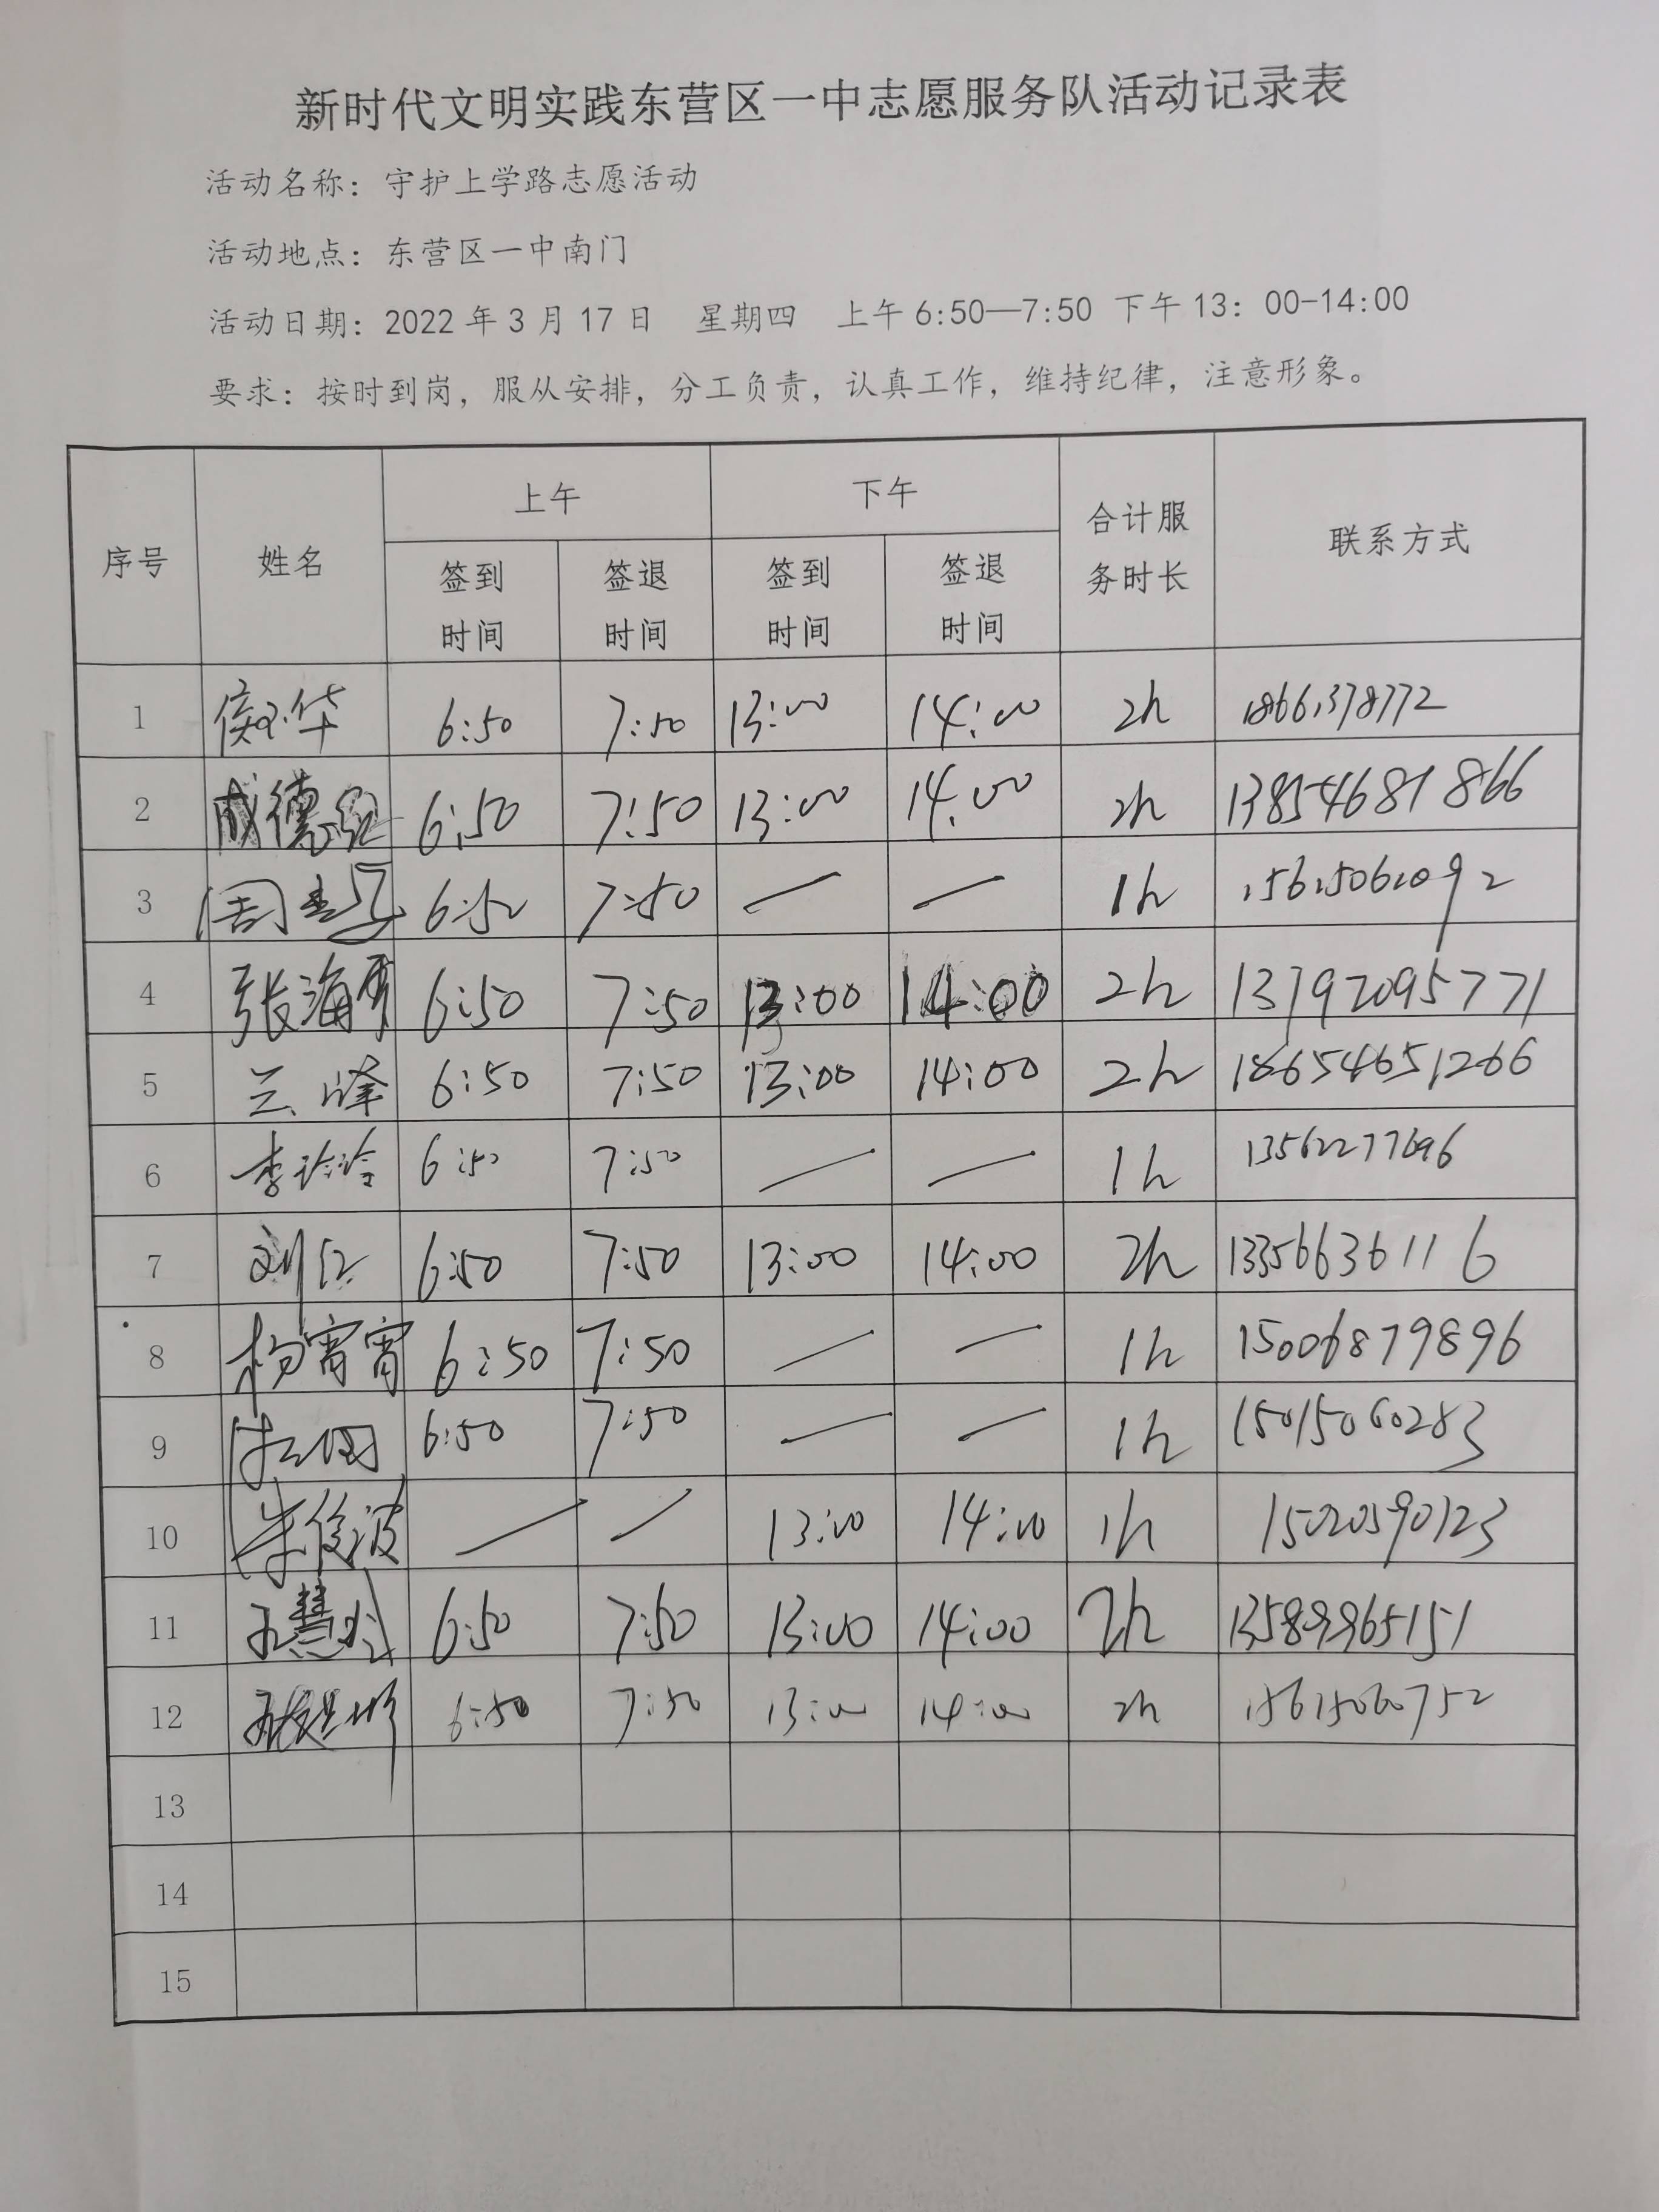 新时代文明实践东营区一中志愿服务队活动记录表
活动名称：守护上学路志愿活动
活动地点：东营区一中南门
活动日期：2022年3月17日 星期四 上午6:50—7:50 下午13：00-14:00
要求：按时到岗，服从安排，分工负责，认真工作，维持纪律，注意形象。
序号 姓名 上午 下午 合计服务时长 联系方式
签到时间 签退时间 签到时间 签退时间
1 6:50 7:50 13:00 14:00 2h
2 成德红 6:50 7:50 13:00 14:00 2h 13854681866
3 6:50 7:50 — — 1h 15615061092
4 张海勇 6:50 7:50 13:00 14:00 2h 13792095771
5 兰峰 6:50 7:50 13:00 14:00 2h 18654651266
6 李玲玲 6:50 7:50 — — 1h 13562277696
7 刘红 6:50 7:50 13:00 14:00 2h 13356636116
8 杨宵宵 6:50 7:50 — — 1h 15006879896
9 6:50 7:50 — — 1h 15015060283
10 朱俊波 — — 13:00 14:00 1h 15020590123
11 6:50 7:50 13:00 14:00 2h 13589965151
12 6:50 7:50 13:00 14:00 2h 15615060752
13
14
15